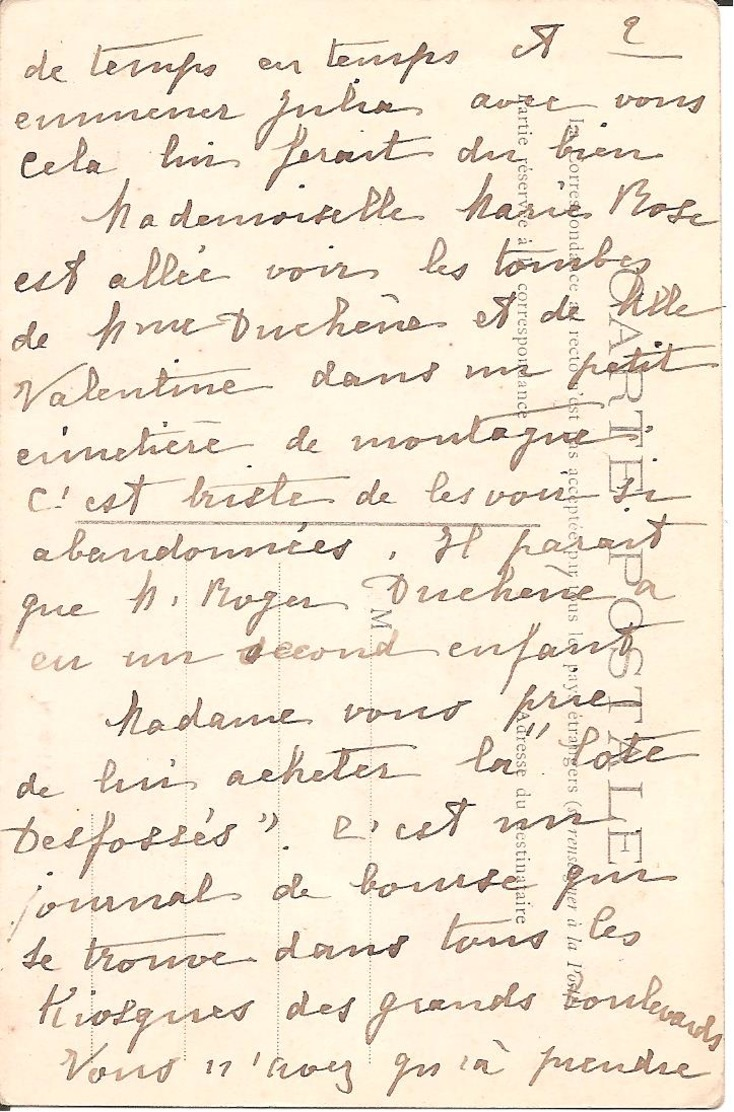 2
de temps en temps et
emmener Julia avec vous
Cela lui ferait du bien
Mademoiselle Marie Rose
est allée voir les tombes
de Mme Duchêne et de Mlle
Valentine dans un petit
cimetière de montagne.
C'est triste de les voir si
abandonnées. Il parait
que M. Roger Duchene a
eu un second enfant
Madame vous prie
de lui acheter la "Cote
Desfossés". C'est un
journal de bourse qui
se trouve dans tous les
Kiosques des grands boulevards
Vous n'avez qu'à prendre
CARTE POSTALE
La Correspondance au recto n'est pas acceptée par tous les pays étrangers (se renseigner à la Poste)
Partie réservée à la correspondance
Adresse du destinataire
M